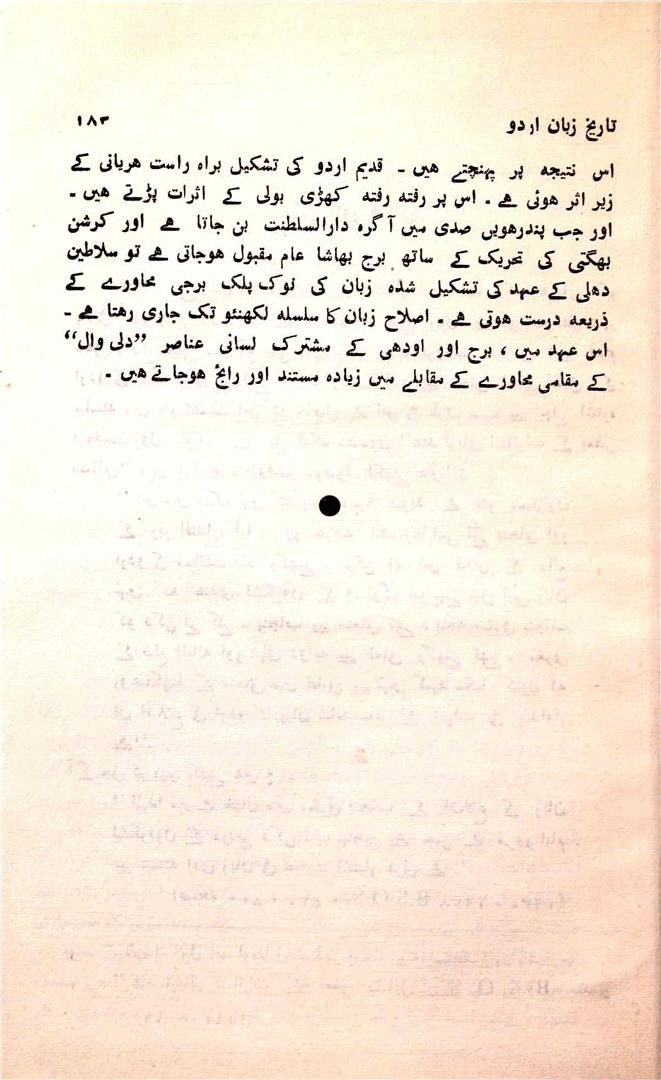 تاریخ زبان اردو ۱۸۳
اس نتیجہ پر پہنچتے ہیں ۔ قدیم اردو کی تشکیل براہ راست ہریانی کے
زیر اثر ہوئی ہے ۔ اس پر رفتہ رفتہ کھڑی بولی کے اثرات پڑتے ہیں ۔
اور جب پندرھویں صدی میں آگرہ دارالسلطنت بن جاتا ہے اور کرشن
بھگتی کی تحریک کے ساتھ برج بھاشا عام مقبول ہوجاتی ہے تو سلاطین
دھلی کے عہد کی تشکیل شدہ زبان کی نوک پلک برجی محاورے کے
ذریعہ درست ہوتی ہے ۔ اصلاح زبان کا سلسلہ لکھنئو تک جاری رہتا ہے ۔
اس عہد میں ، برج اور اودھی کے مشترک لسانی عناصر ”دلی وال“
کے مقامی محاورے کے مقابلے میں زیادہ مستند اور رائج ہوجاتے ہیں ۔